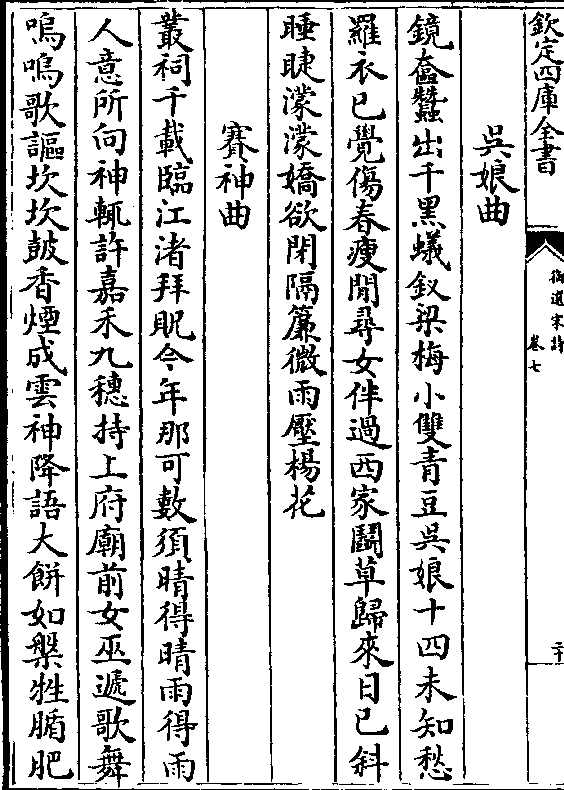 欽定四庫全書
御選宋詩
卷七
二十
吳娘曲
鏡奩蠶出千黑蟻釵梁梅小雙青豆吳娘十四未知愁
羅衣已覺傷春瘦閒尋女伴過西家鬭草歸來日已斜
睡睫濛濛嬌欲閉隔簾微雨壓楊花
賽神曲
叢祠千載臨江渚拜貺今年那可數須晴得晴雨得雨
人意所向神輒許嘉禾九穗持上府廟前女巫遞歌舞
嗚嗚歌謳坎坎鼓香煙成雲神降語大餅如槃牲腯肥